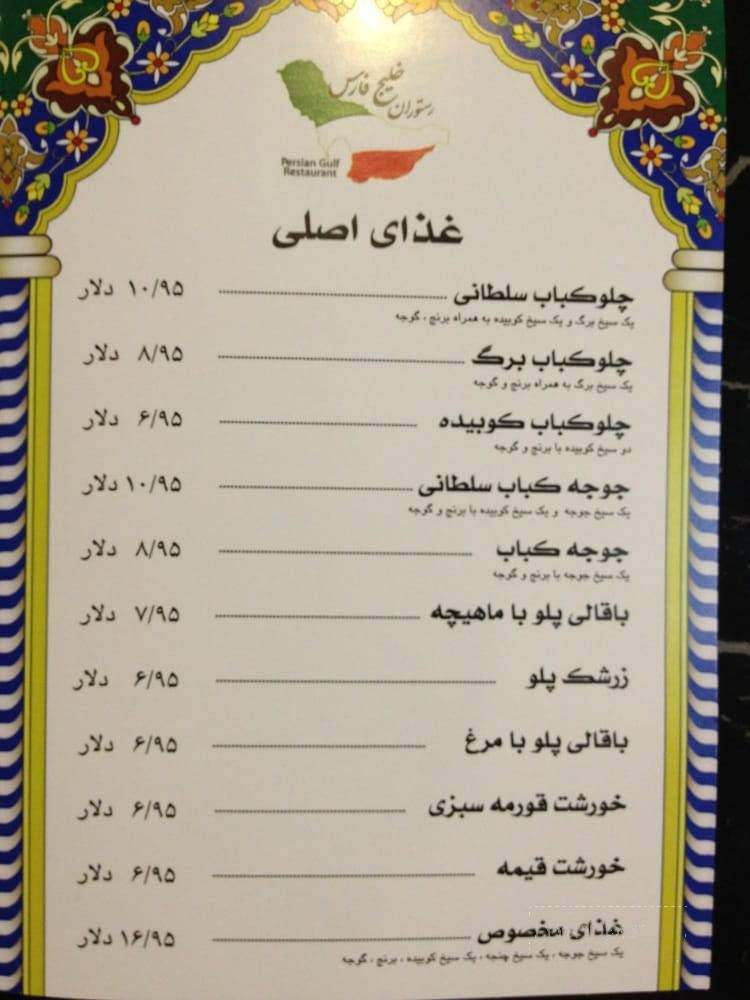 رستوران خلیج فارس
Persian Gulf
Restaurant
غذای اصلی
چلوکباب سلطانی ۱۰/۹۵ دلار
یک سیخ برگ و یک سیخ کوبیده به همراه برنج ، گوجه
چلوکباب برگ ۸/۹۵ دلار
یک سیخ برگ به همراه برنج و گوجه
چلوکباب کوبیده ۶/۹۵ دلار
دو سیخ کوبیده با برنج و گوجه
جوجه کباب سلطانی ۱۰/۹۵ دلار
یک سیخ جوجه و یک سیخ کوبیده با برنج و گوجه
جوجه کباب ۸/۹۵ دلار
یک سیخ جوجه با برنج و گوجه
باقالی پلو با ماهیچه ۷/۹۵ دلار
زرشک پلو ۶/۹۵ دلار
باقالی پلو با مرغ ۶/۹۵ دلار
خورشت قورمه سبزی ۶/۹۵ دلار
خورشت قیمه ۶/۹۵ دلار
غذای مخصوص ۱۶/۹۵ دلار
یک سیخ جوجه ، یک سیخ چنجه ، یک سیخ کوبیده ، برنج ، گوجه